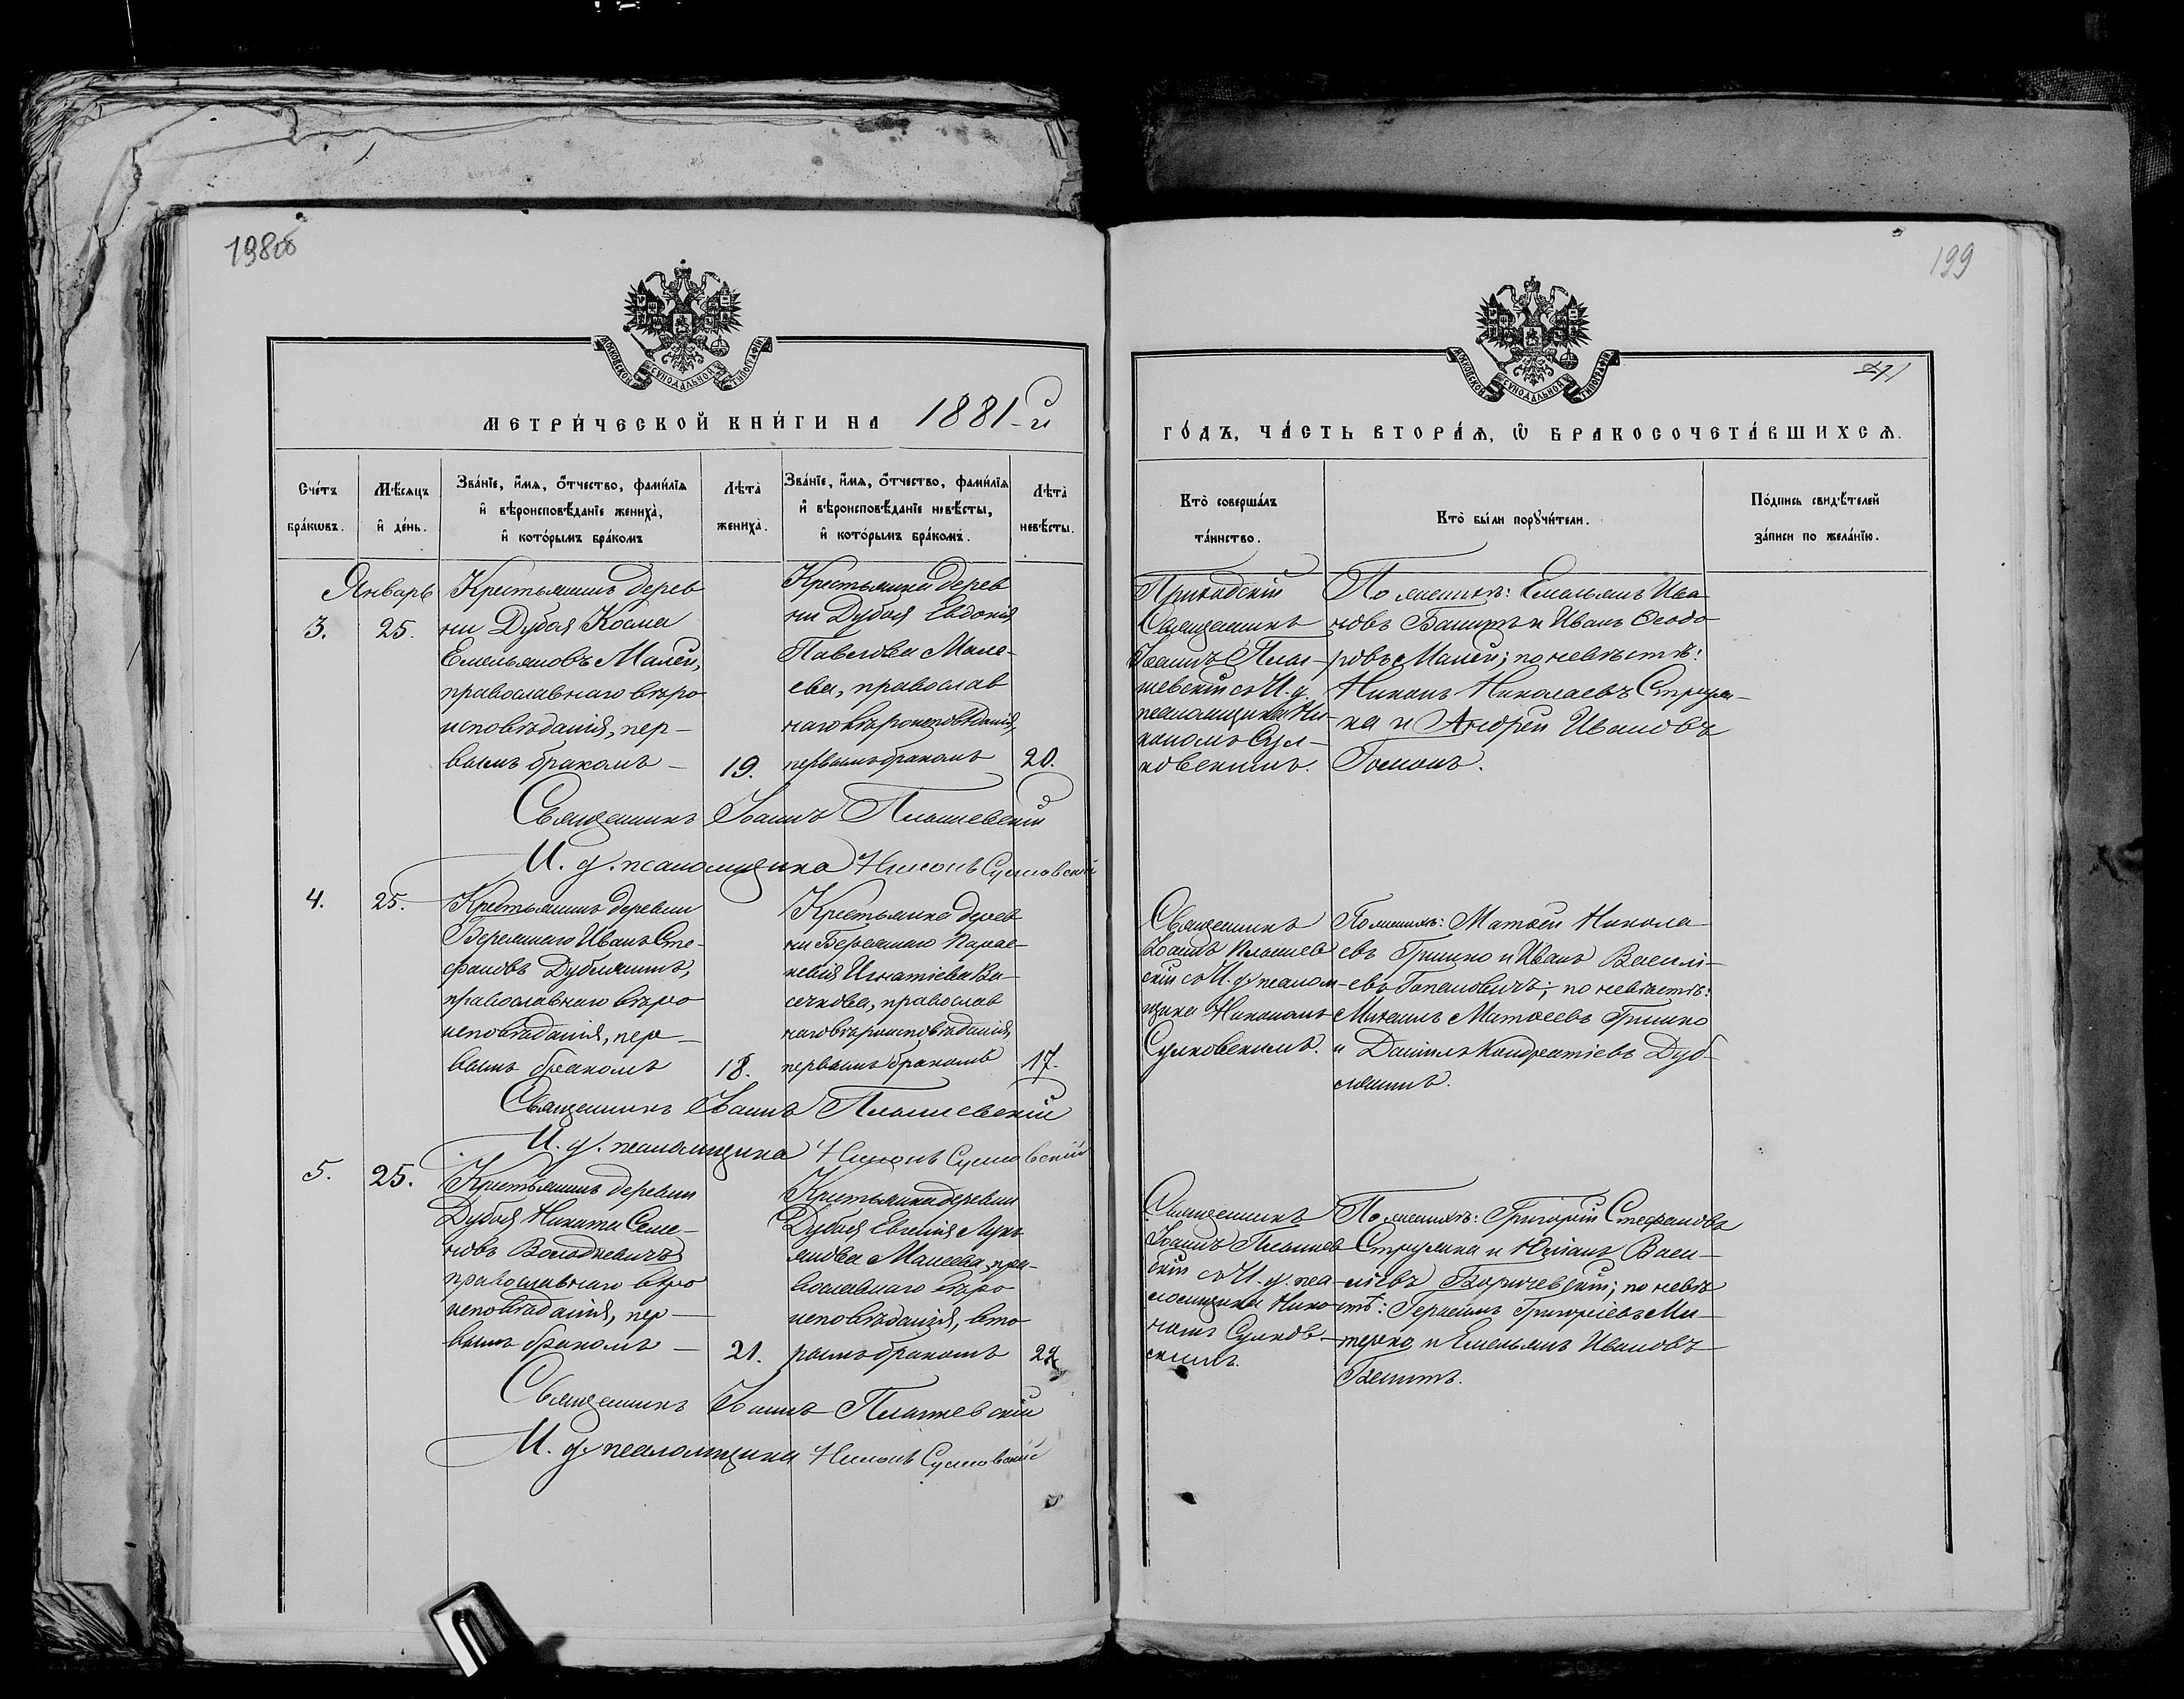 198об
199
МОСКОВСКОЙ СѴНОДАЛЬНОЙ ТИПОГРАФІИ
МЕТРИ́ЧЕСКОЙ КНИ́ГИ НА 1881-й
Сче́тъ бра́кѡвъ.
Мѣ́сяцъ и҆ де́нь.
Зва́нїе, и҆́мѧ, ѻ҆́тчество, фами́лїѧ
и҆ вѣроисповѣ́данїе жениха̀,
и҆ кото́рымъ бра́комъ
Лѣта̀ жениха̀.
Зва́нїе, и҆́мѧ, ѻ҆́тчество, фами́лїѧ
и҆ вѣроисповѣ́данїе невѣ́сты,
и҆ кото́рымъ бра́комъ.
Лѣта̀ невѣ́сты.
Январь
3.
25.
Крестьянинъ дерев
ни Дубоя Косма
Емельяновъ Малей,
православнаго вѣро
исповѣданія, пер-
вымъ бракомъ
19.
Крестьянка дерев
ни Дубоя Евдокія
Павлова Мале-
ева, православ
наго вѣроисповѣданія,
первымъ бракомъ
20.
Священникъ Іоаннъ Плышевскій
И. д. псаломщика Никонъ Сулковскій
4.
25.
Крестьянинъ деревни
Бережнаго Иванъ Сте-
фановъ Дублянинъ,
православнаго вѣро
исповѣданія, пер-
вымъ бракомъ
18.
Крестьянка дерев
ни Бережнаго Парас-
кевія Игнатіева Ва-
сечкова, православ
наго вѣроисповѣданія,
первымъ бракомъ
17.
Священникъ Іоаннъ Плышевскій
И. д. псаломщика Никонъ Сулковскій
5.
25.
Крестьянинъ деревни
Дубоя Никита Семе-
новъ Володкевичъ
православнаго вѣро
исповѣданія, пер-
вымъ бракомъ
21.
Крестьянка деревни
Дубоя Евгенія Лукь
янова Малеева, пра-
вославнаго вѣро
исповѣданія, вто
рымъ бракомъ
Священникъ Іоаннъ Плышевскій
И. д. псаломщика Никонъ Сулковскій
МОСКОВСКОЙ СѴНОДАЛЬНОЙ ТИПОГРАФІИ
ГО́ДЪ, ЧА́СТЬ ВТОРА́Ѧ, Ѽ БРАКОСОЧЕТА́ВШИХСѦ.
Кто̀ соверша́лъ
та́инство.
Кто̀ бы́ли порꙋчи́тели.
По́дпись свидѣ́телей
за́писи по жела́нїю.
Приходскій
Священникъ
Іоаннъ Плы-
шевскій съ И. д.
псаломщика Ни-
кономъ Сул-
ковскимъ.
По женихѣ: Емельянъ Ива
новъ Башитъ и Иванъ Ѳеодо
ровъ Малей; по невѣстѣ:
Никонъ Николаевъ Стружа-
ка и Андрей Ивановъ
Гомонъ.
Священникъ
Іоаннъ Плышев
скій съ И. д. псалом-
щика Никономъ
Сулковскимъ.
По женихѣ: Матѳей Никола
евъ Гришко и Иванъ Василі-
евъ Гапановичъ; по невѣстѣ:
Михаилъ Матѳеевъ Гришко
и Даніилъ Кондратіевъ Дуб-
лянинъ.
Священникъ
Іоаннъ Плышев
скій съ И. д. пса-
ломщика Нико-
номъ Сулков-
скимъ.
По женихѣ: Григорій Стефановъ
Стружака и Юліанъ Васи-
ліевъ Боричевскій; по невѣ
стѣ: Герасимъ Григоріевъ Ми-
терко и Емельянъ Ивановъ